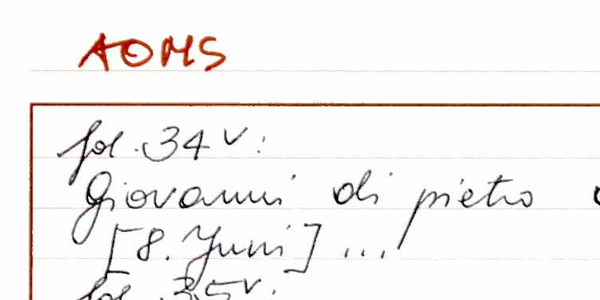 AOMS
fol. 34 v:
Giovanni di pietro
[8. Juni] ...
fol. 35 v: